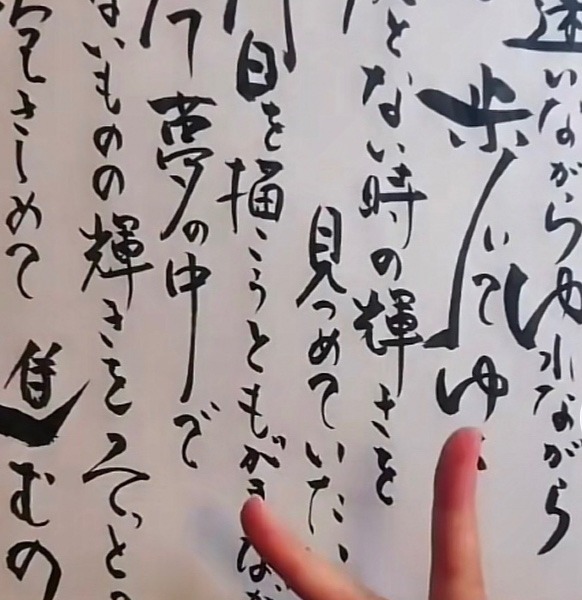 迷いながらゆれながら
歩いてゆ
とない時の輝きを
見つめていたい
日を描こうともがきなが
夢の中で
ないものの輝きをそっと
きしめて 進むの